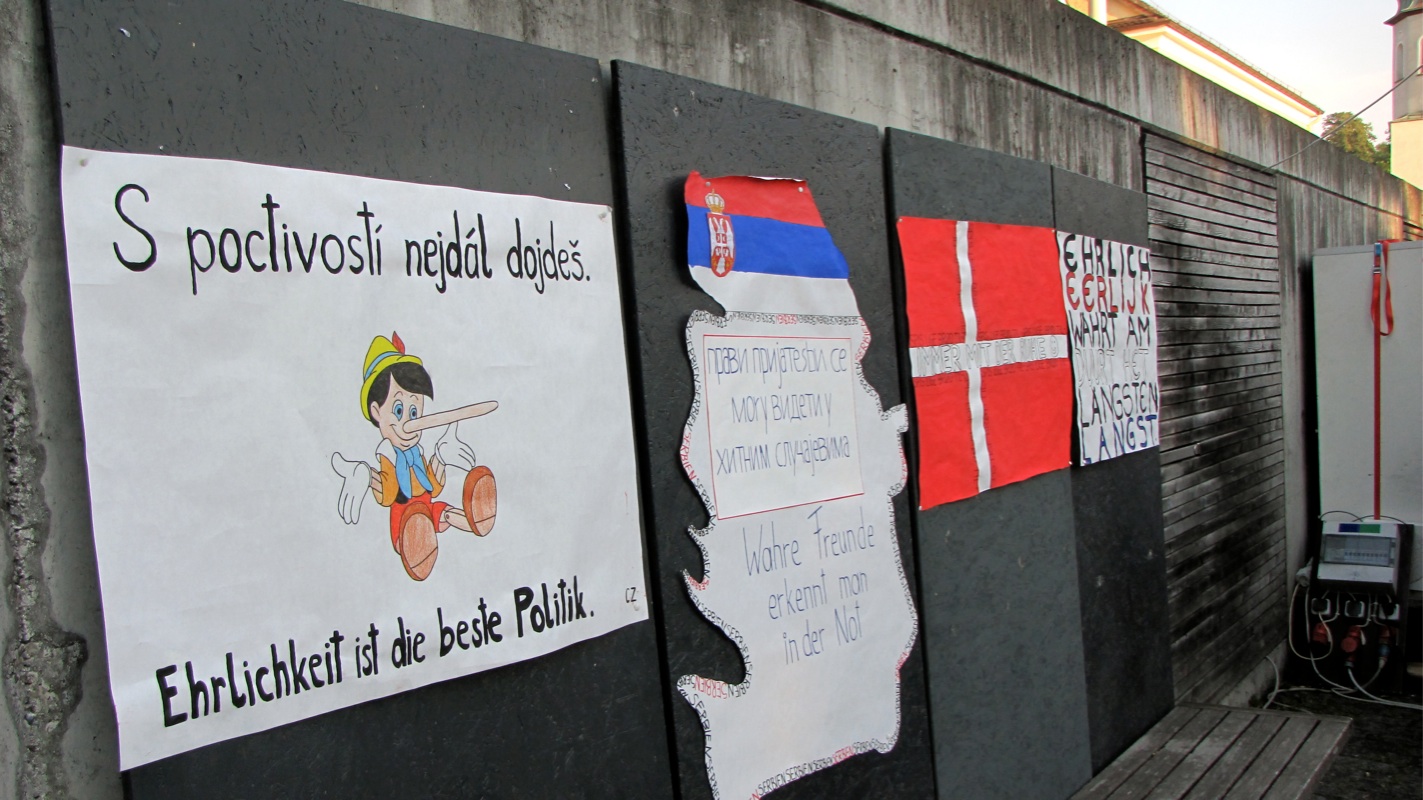 S poctivostí nejdál dojdeš.
Ehrlichkeit ist die beste Politik.
CZ
прави пријатељи се
могу видети у
хитним случајевима
Wahre Freunde
erkennt man
in der Not
SERBIEN
IMMER MIT DER RUHE
EHRLICH
EERLIJK
WÄHRT AM
DUURT HET
LÄNGSTEN
LANGST